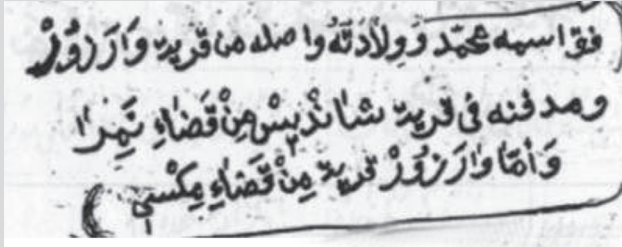 فق اسمه محمّد وَوِلاَدَتَهُ واصله من قرية وَارَزُوْرْ
ومدفنه فى قرية شاندبِسْ مِنْ قَضَاءِ تِمِرَا
وَأمّا وَارَزُوْرْ قرية مِنْ قَضَاءِ مِكْسِي